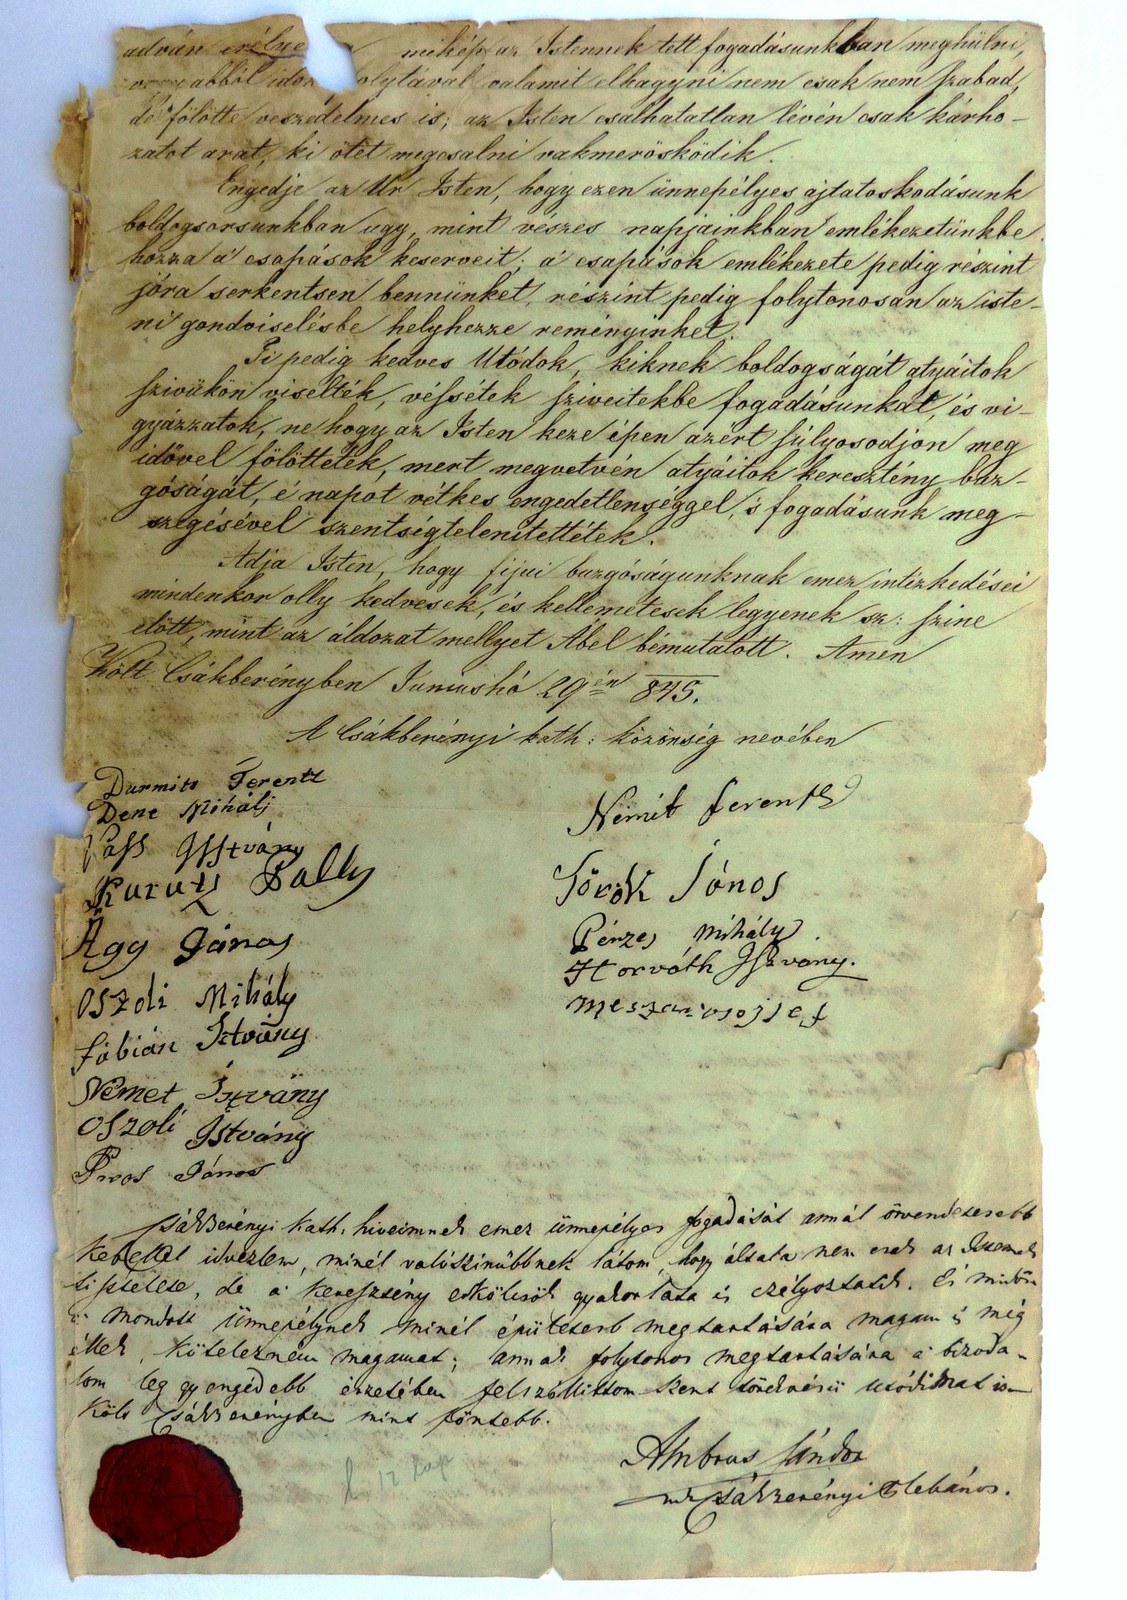 adván erélye miképp az Istennek tett fogadásunkban meghülni,
vagy abból idő folytával valamit elhagyni nem csak nem szabad,
de fölötte veszedelmes is; az Isten csalhatatlan lévén csak kárho-
zatot arat, ki ötet megcsalni vakmerősködik.
Engedje az Ur Isten, hogy ezen ünnepélyes ájtatoskodásunk
boldogsorsunkban ugy, mint vészes napjainkban emlékezetünkbe
hozza a' csapások keserveit; a' csapások emlékezete pedig részint
jóra serkentsen bennünket, részint pedig folytonosan az iste-
ni gondviselésbe helyhezze reményinket.
Ti pedig kedves Utódok, kiknek boldogságát atyáitok
szivükön viselték, véssétek sziveitekbe fogadásunkat, és vi-
gyázzatok, ne hogy az Isten keze épen azért súlyosodjon meg
idővel fölöttetek, mert megvetvén atyáitok keresztény buz-
góságát, é napot vétkes engedetlenséggel, 's fogadásunk meg-
szegésével szentségtelenitettétek.
Adja Isten, hogy fijui buzgóságunknak emez intézkedései
mindenkor olly kedvesek, és kellemetesek legyenek sz: szine
előtt, mint az áldozat mellyet Ábel bémutatott. Amen
Költ Csákberényben Juniushó 29én 845.
A Csákberényi kath: közönség nevében
Durmits Ferentz
Dene Mihálj
Vass Istvány
Kuruts Pally
Ágg János
Oszoli Mihály
Fábián Istvány
Német Istvány
Oszoli Istvány
Piros János
Németh Ferentz
Török János
Pérzes Mihály
Horváth Istvány.
Meszaros ojsef
Csákberényi kath. hiveimnek emez ünnepélyes fogadását annál örvendetesebb
kebellel idvezlem, minél valószinübbnek látom, hogy általa nem csak az Istennek
tisztelete, de a' keresztény erkölcsök gyakorlata is czélyoztatik. És midőn
a' mondott ünnepélynek minél épületesb megtartására magam is még
élek, kötelezném magamat; annak folytonos megtartására a' bizoda-
lom leg gyengédebb érzetében felszóllittom szent törekvésü utódimat is-
Költ Csákberényben mint föntebb.
Ambrus Sándor
mk Csákberényi Plebános.